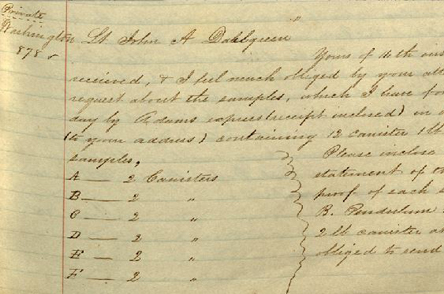 Private
Washington Lt John A Dahlgreen
878
Yours of 11th ins
received, & I feel much obliged by your att
request about the samples, which I have for
day by Adams express (receipt inclosed) in a
(to your address) containing 12 canister 1 lb
samples,
A — 2 Canisters
B — 2 "
C — 2 "
D — 2 "
E — 2 "
F — 2 "
Please inclose
statement of
proof of each
B. Pendulum
2 lb canister as
obliged to send